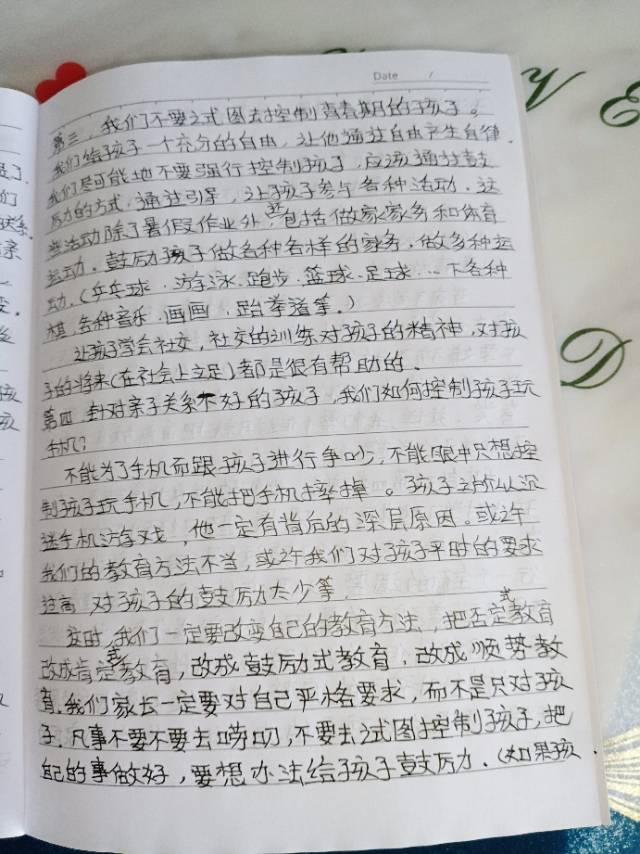 Date /
第三，我们不要试图去控制青春期的孩子。
我们给孩子一个充分的自由，让他通过自由产生自律。
我们尽可能地不要强行控制孩子，应该通过鼓
励的方式，通过引导，让孩子参与各种活动。这
些活动除了暑假作业外，包括做家家务和体育
运动。鼓励孩子做各种各样的家务，做多种运
动。(乒乓球、游泳、跑步、篮球、足球…下各种
棋、各种音乐、画画、跆拳道等。)
让孩子学会社交，社交的训练对孩子的精神，对孩
子的将来(在社会上立足)都是很有帮助的。
第四，针对亲子关系不好的孩子，我们如何控制孩子玩
手机？
不能为了手机而跟孩子进行争吵，不能眼中只想控
制孩子玩手机，不能把手机摔掉。孩子之所以沉
迷手机游戏，他一定有背后的深层原因。或许
我们的教育方法不当，或许我们对孩子平时的要求
过高，对孩子的鼓励太少等。
这时，我们一定要改变自己的教育方法，把否定式教育
改成肯定式教育，改成鼓励式教育，改成顺势教
育。我们家长一定要对自己严格要求，而不是只对孩
子。凡事不要不要去唠叨，不要去试图控制孩子，把
自己的事做好，要想办法给孩子鼓励。(如果孩